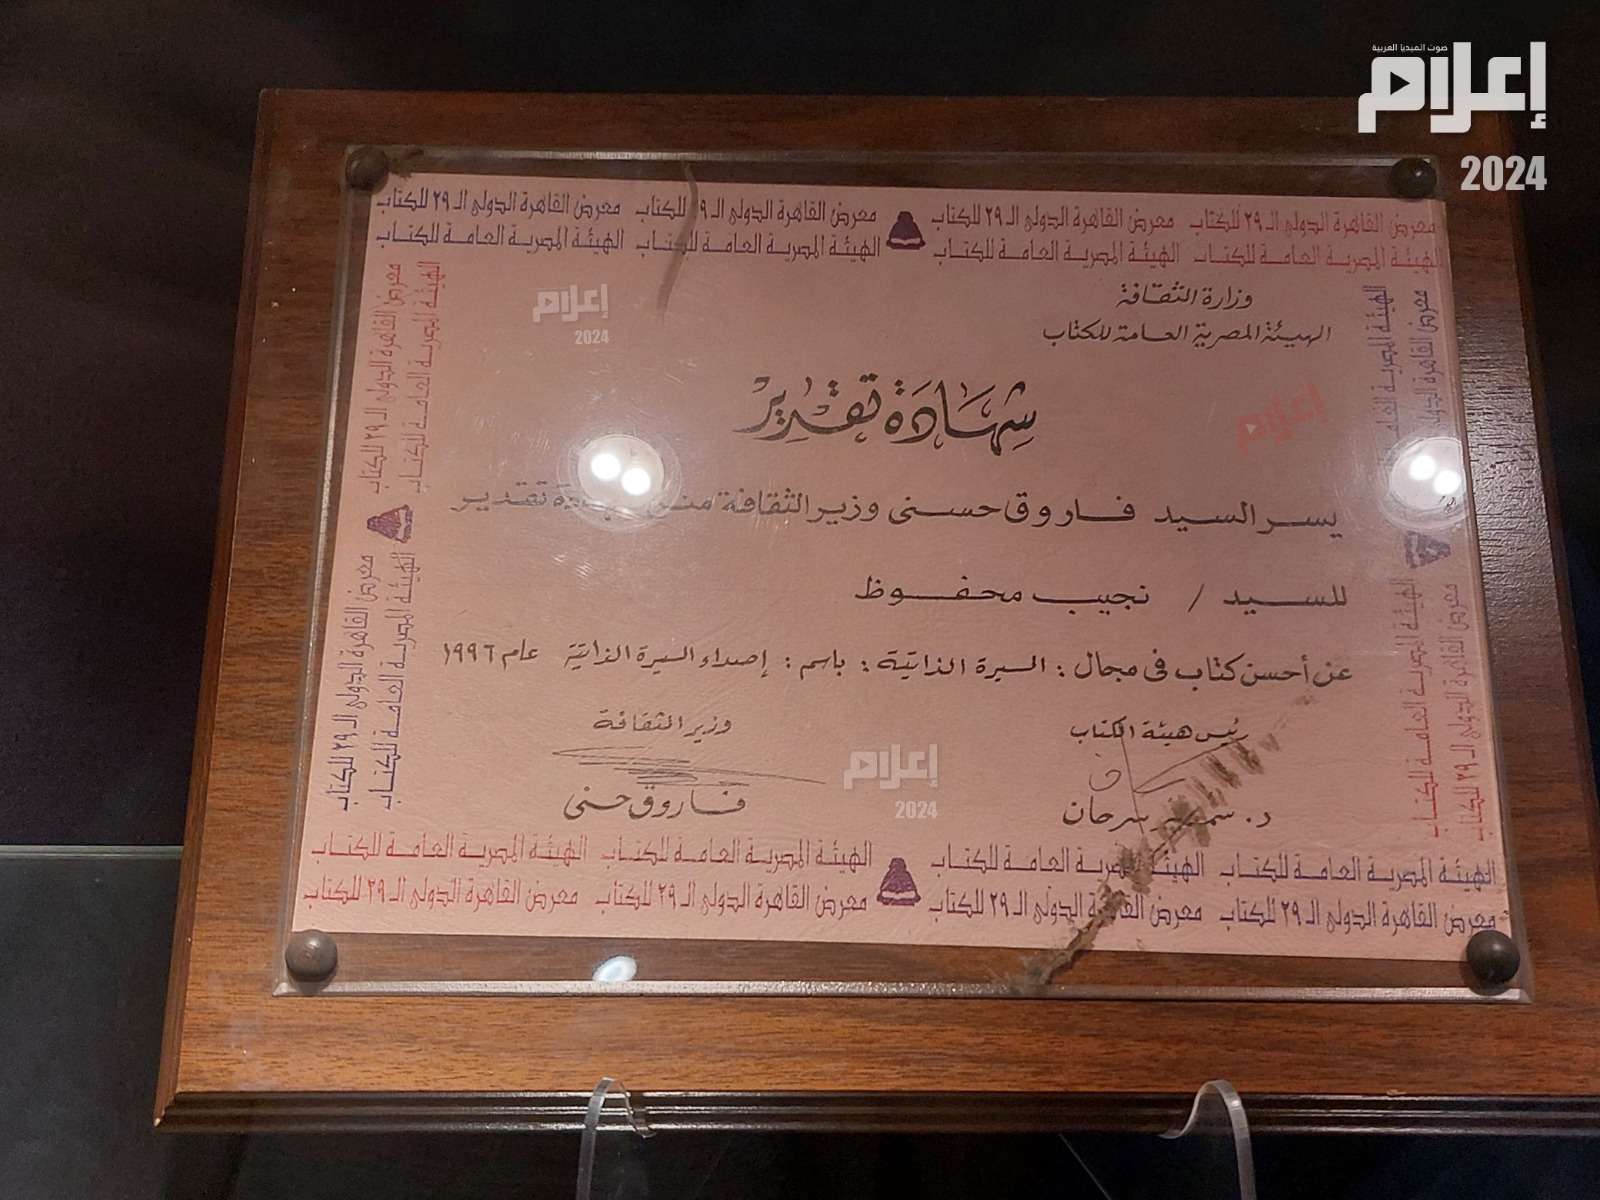 صوت الميديا العربية
إعلام
2024
معرض القاهرة الدولى الـ ٢٩ للكتاب معرض القاهرة الدولى الـ ٢٩ للكتاب معرض القاهرة الدولى الـ ٢٩ للكتاب معرض القاهرة الدولى الـ ٢٩ للكتاب
الهيئة المصرية العامة للكتاب الهيئة المصرية العامة للكتاب الهيئة المصرية العامة للكتاب الهيئة المصرية العامة للكتاب
وزارة الثقافة
الهيئة المصرية العامة للكتاب
إعلام
2024
شهادة تقدير
إعلام
يسر السيد فاروق حسنى وزير الثقافة منح شهادة تقدير
للسيد / نجيب محفوظ
عن أحسن كتاب فى مجال : السيرة الذاتية : باسم : إصداء السيرة الذاتية عام ١٩٩٦
رئيس هيئة الكتاب
وزير الثقافة
د. سمير سرحان
فاروق حسنى
إعلام
2024
الهيئة المصرية العامة للكتاب الهيئة المصرية العامة للكتاب الهيئة المصرية العامة للكتاب الهيئة المصرية العامة للكتاب
معرض القاهرة الدولى الـ ٢٩ للكتاب معرض القاهرة الدولى الـ ٢٩ للكتاب معرض القاهرة الدولى الـ ٢٩ للكتاب معرض القاهرة الدولى الـ ٢٩ للكتاب
معرض القاهرة الدولى الـ ٢٩ للكتاب معرض القاهرة الدولى الـ ٢٩ للكتاب
الهيئة المصرية العامة للكتاب الهيئة المصرية العامة للكتاب
الهيئة المصرية العامة للكتاب
معرض القاهرة الدولى الـ ٢٩ للكتاب